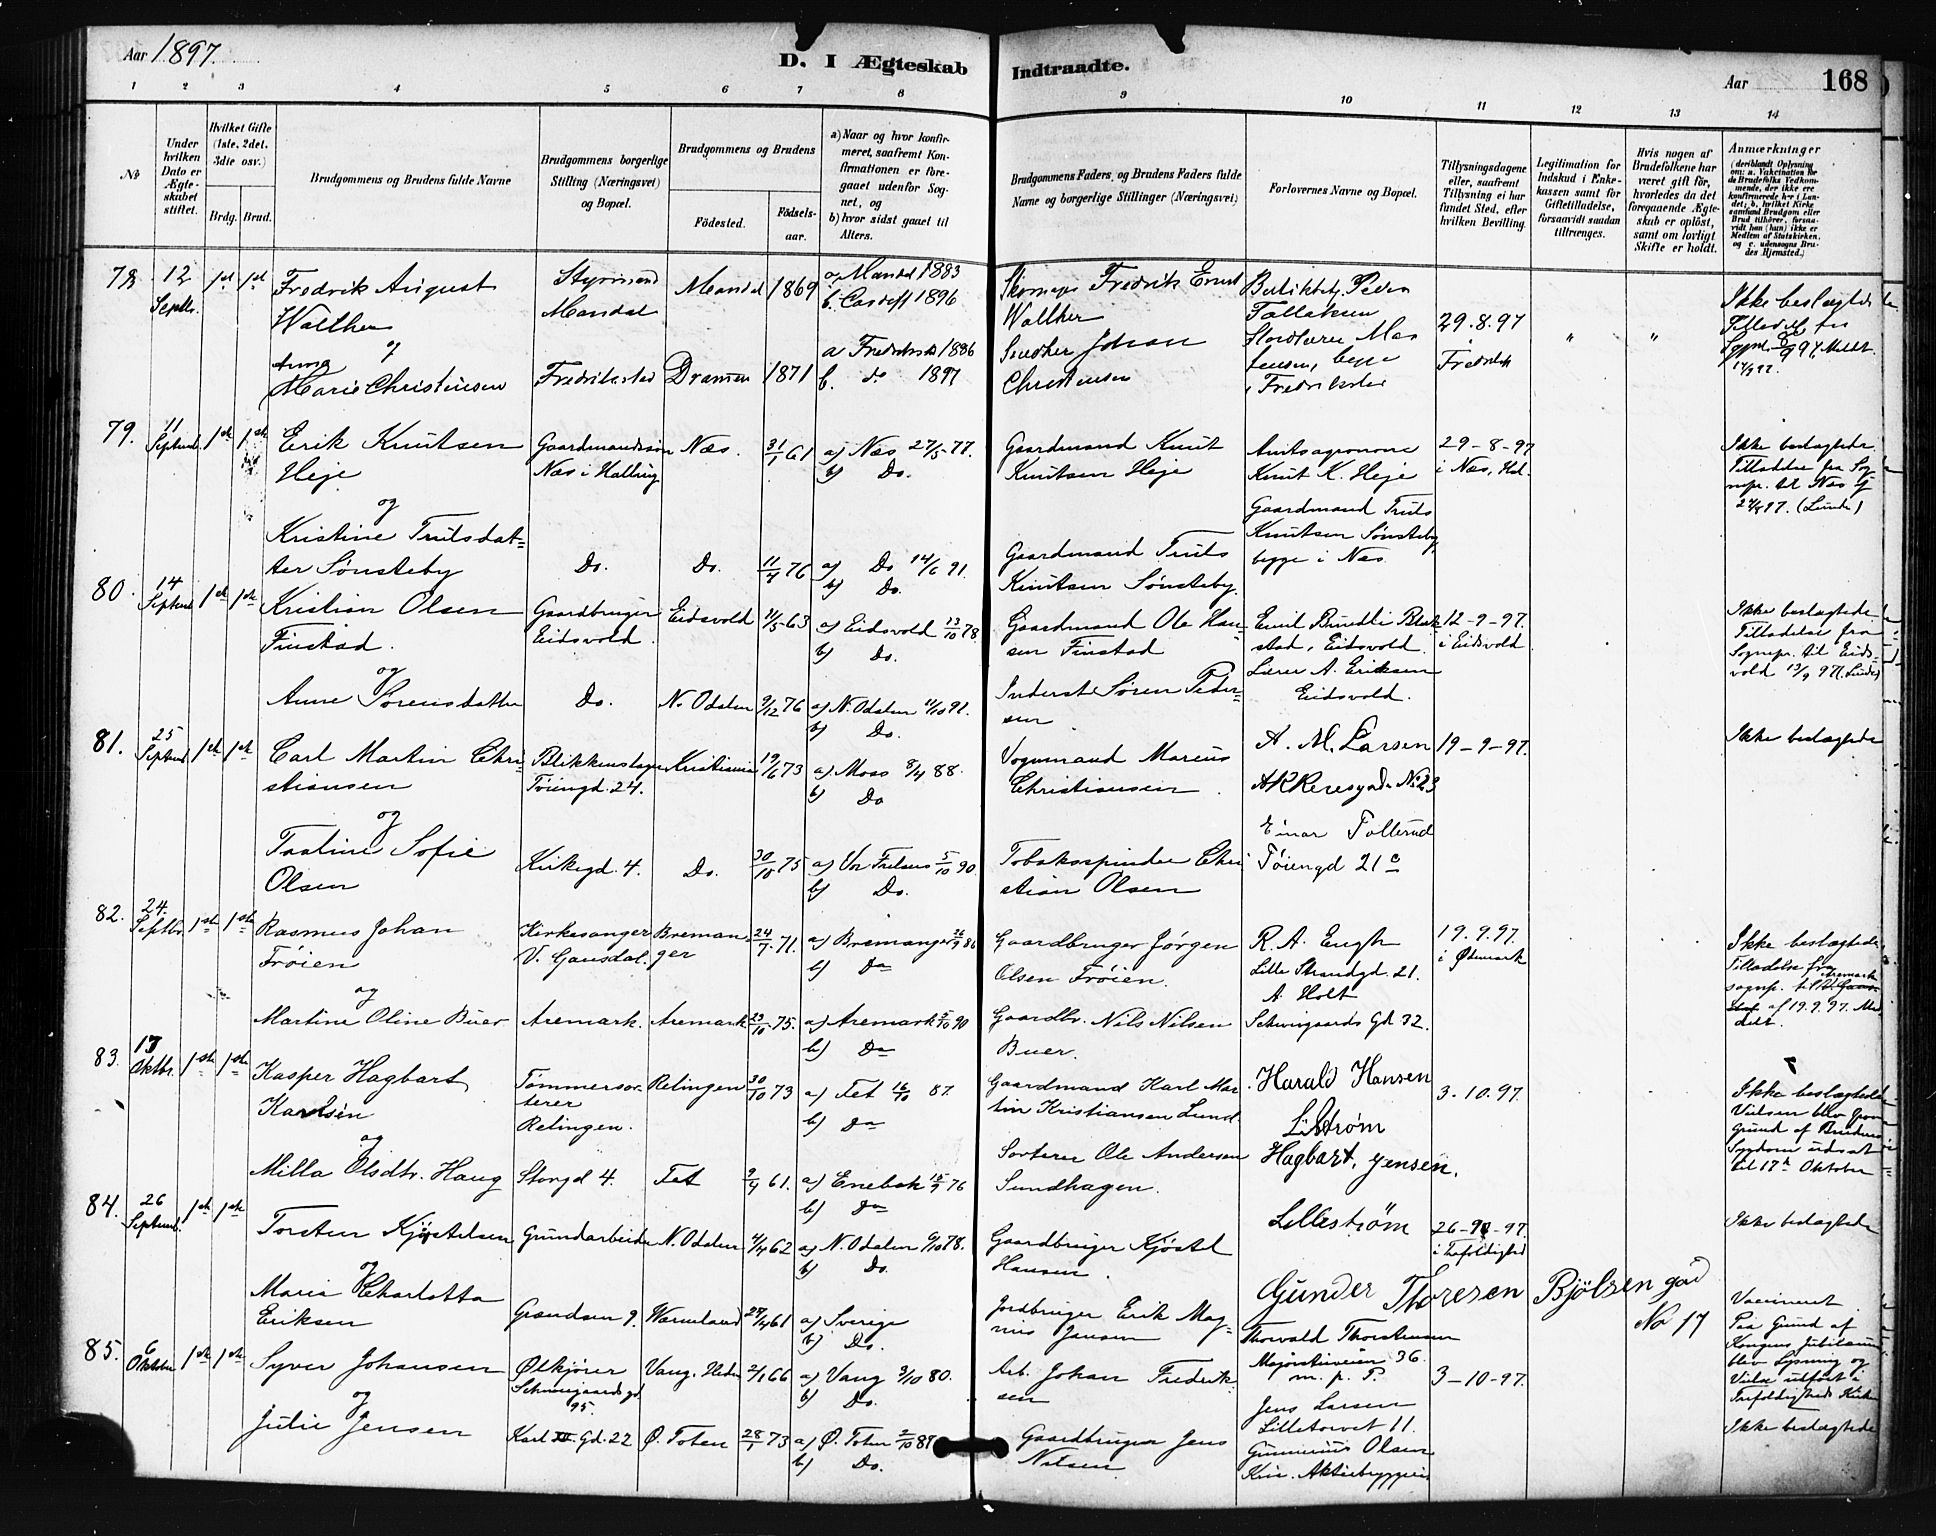 Aar 1897.
D. I Ægteskab
Indtraadte.
Aar
168
1 2 3 4 5 6 7 8 9 10 11 12 13 14
No
Under hvilken Dato er Ægteskabet stiftet.
Hvilket Gifte (1ste, 2det, 3die osv.)
Brdg. Brud.
Brudgommens og Brudens fulde Navne
Brudgommens borgerlige Stilling (Næringsvei) og Bopæl.
Brudgommens og Brudens
Fødested.
Fødselsaar.
a) Naar og hvor konfirmeret, saafremt Konfirmationen er foregaaet udenfor Sognet, og
b) hvor sidst gaaet til Alters.
Brudgommens Faders, og Brudens Faders fulde Navne og borgerlige Stillinger (Næringsvei)
Forlovernes Navne og Bopæl.
Tillysningsdagene eller, saafremt Tillysning ei har fundet Sted, efter hvilken Bevilling.
Legitimation for Indskud i Enkekassen samt for Giftetilladelse, forsaavidt saadan tiltrænges.
Hvis nogen af Brudefolkene har været gift før, hvorledes da det foregaaende Ægteskab er opløst, samt om lovligt Skifte er holdt.
Anmærkninger
78 12 Septbr. 1st 1st
Fredrik August Walther
Styrmand Mandal
Mandal 1869
a. Mandal 1883
b. Cardiff 1896
Fredrik Ernst Walther
29.8.97
Ikke beslægtede
og
Anna Marie Christensen
Fredrikstad
Dramen 1871
a Fredrikstd 1886
b. do 1897
Johan Christensen
i Fredrikstad
79. 11 Septemb 1ste 1ste
Erik Knutsen Heje
Gaardmandssøn Næs i Halling
Næs. 31/1 61
a) Næs 27/5-77.
b) Do.
Gaardmand Knut Knutsen Heje
Amtsagronome Knut K. Heje
29-8-97 i Næs, Hal.
Ikke beslægtede. Tilladelse fra Sognepr. til Næs
og
Kristine Trulsdatter Sønsteby
Do. Do. 11/4 76
a) Do 14/6 91.
b) Do.
Gaardmand Truls Knutsen Sønsteby.
Gaardmand Truls Knutsen Sønsteby, begge i Næs
80. 14 Septemb 1ste 1ste
Kristian Olsen Finstad.
Gaardbruger Eidsvold.
Eidsvold 63
a) Eidsvold 13/10 78.
b) Do.
Gaardmand Ole Hansen Finstad
Eidsvold
12-9-97. i Eidsvold
Ikke beslægtede. Tilladelse fra Sognepr. til Eidsvold 13/9 97
og
Anne Sørensdatter
Do. N. Odalen 9/12 76
a) N. Odalen 91.
b) Do.
Inderst Søren Pedersen
Lærer A. Eriksen Eidsvold.
81. 25 Septemb 1ste 1ste
Carl Martin Christiansen
Blikkenslager Tøiengd. 24.
Kristiania 19/6 73
a) Moss 8/4 88.
b) Do
Vognmand Marcus Christiansen.
A. M. Larsen
Akkersgade No 23
19-9-97.
Ikke beslægtede
og
Sofie Olsen
Kirkegd. 4.
Do. 30/10 75
a) Vor Frelsers 5/10 90.
b) Do.
Tobaksspinder Christian Olsen
Einar Tollerud
Tøiengd 21c
82. 24. Septbr. 1ste 1ste
Rasmus Johan Frøien
Kirkesanger V. Gausdal.
Bremanger 24/7 71.
a) Bremanger 86
b) Do
Gaardbruger Jørgen Olsen Frøien.
R. A. Engh
Lille Strandgd. 21.
19.9.97. i Ødemark
Ikke beslægtede.
Tilladelse fra sognp. til Aremark af 19.9.97.
og
Martine Oline Buer
Aremark. Aremark 23/10 75.
a) Aremark 5/10 90
b) Do
Gaardbr. Nils Nilsen Buer.
A. Holt
Schweigaards Gd 32.
83. 17 Oktbr. 1ste 1ste
Kasper Hagbart Karlsen
Tømmersorterer Relingen.
Relingen 30/10 73
a) Fet 16/10 87.
b) Do
Gaardmand Karl Martin Kristiansen Lund.
Harald Hansen
L.Strøm
3.10.97.
Ikke beslægtede
Vielsen blev paa Grund af Brudens Sygdom udsat til 17de Oktober
og
Milla Olsdtr. Haug
Storgd 4. Fet 9/4 61.
a) Enebak 15/9 76
b) Do
Sorterer Ole Andersen Sundhagen.
Hagbart. Jensen.
Lillestrøm
84. 26 Septemb. 1ste 1ste
Torsten Kjøstelsen
Grundarbeider N. Odalen 62
a) N. Odalen 78.
b) Do.
Gaardbruger Kjøstel Hansen.
Gunder Thoresen Bjølsen gad No 17
26-9-97. i Trefoldighed
Ikke beslægtede
og
Maria Charlotta Eriksen
Grændsen 9. Wærmeland 61
a) Sverige
b) Do.
Jordbruger Erik Magnus Jensen
Thorvald Thorstensen
Majorstuveien 36.
m. p. P
Vaccineret
Paa Grund af Kongens Jubilæum blev Lysning og Vielse udført i Trefoldigheds Kirke
85. 6 Oktober 1ste 1ste
Syver Johansen
Ølkjører Schweigaardsgd. 95.
Vang, Hedm 2/1 66
a) Vang 3/10 80.
b) Do.
Arb. Johan Fredriksen
Jens Larsen
Lilletorvet 11.
3-10-97.
Ikke beslægtede
og
Julie Jensen
Karl XII. Gd. 22
Ø. Toten 28/1 73
a) Ø. Toten 2/10 87
b) Do.
Gaardbruger Jens Nilsen
Olsen
Kria. Aktiebryggeri